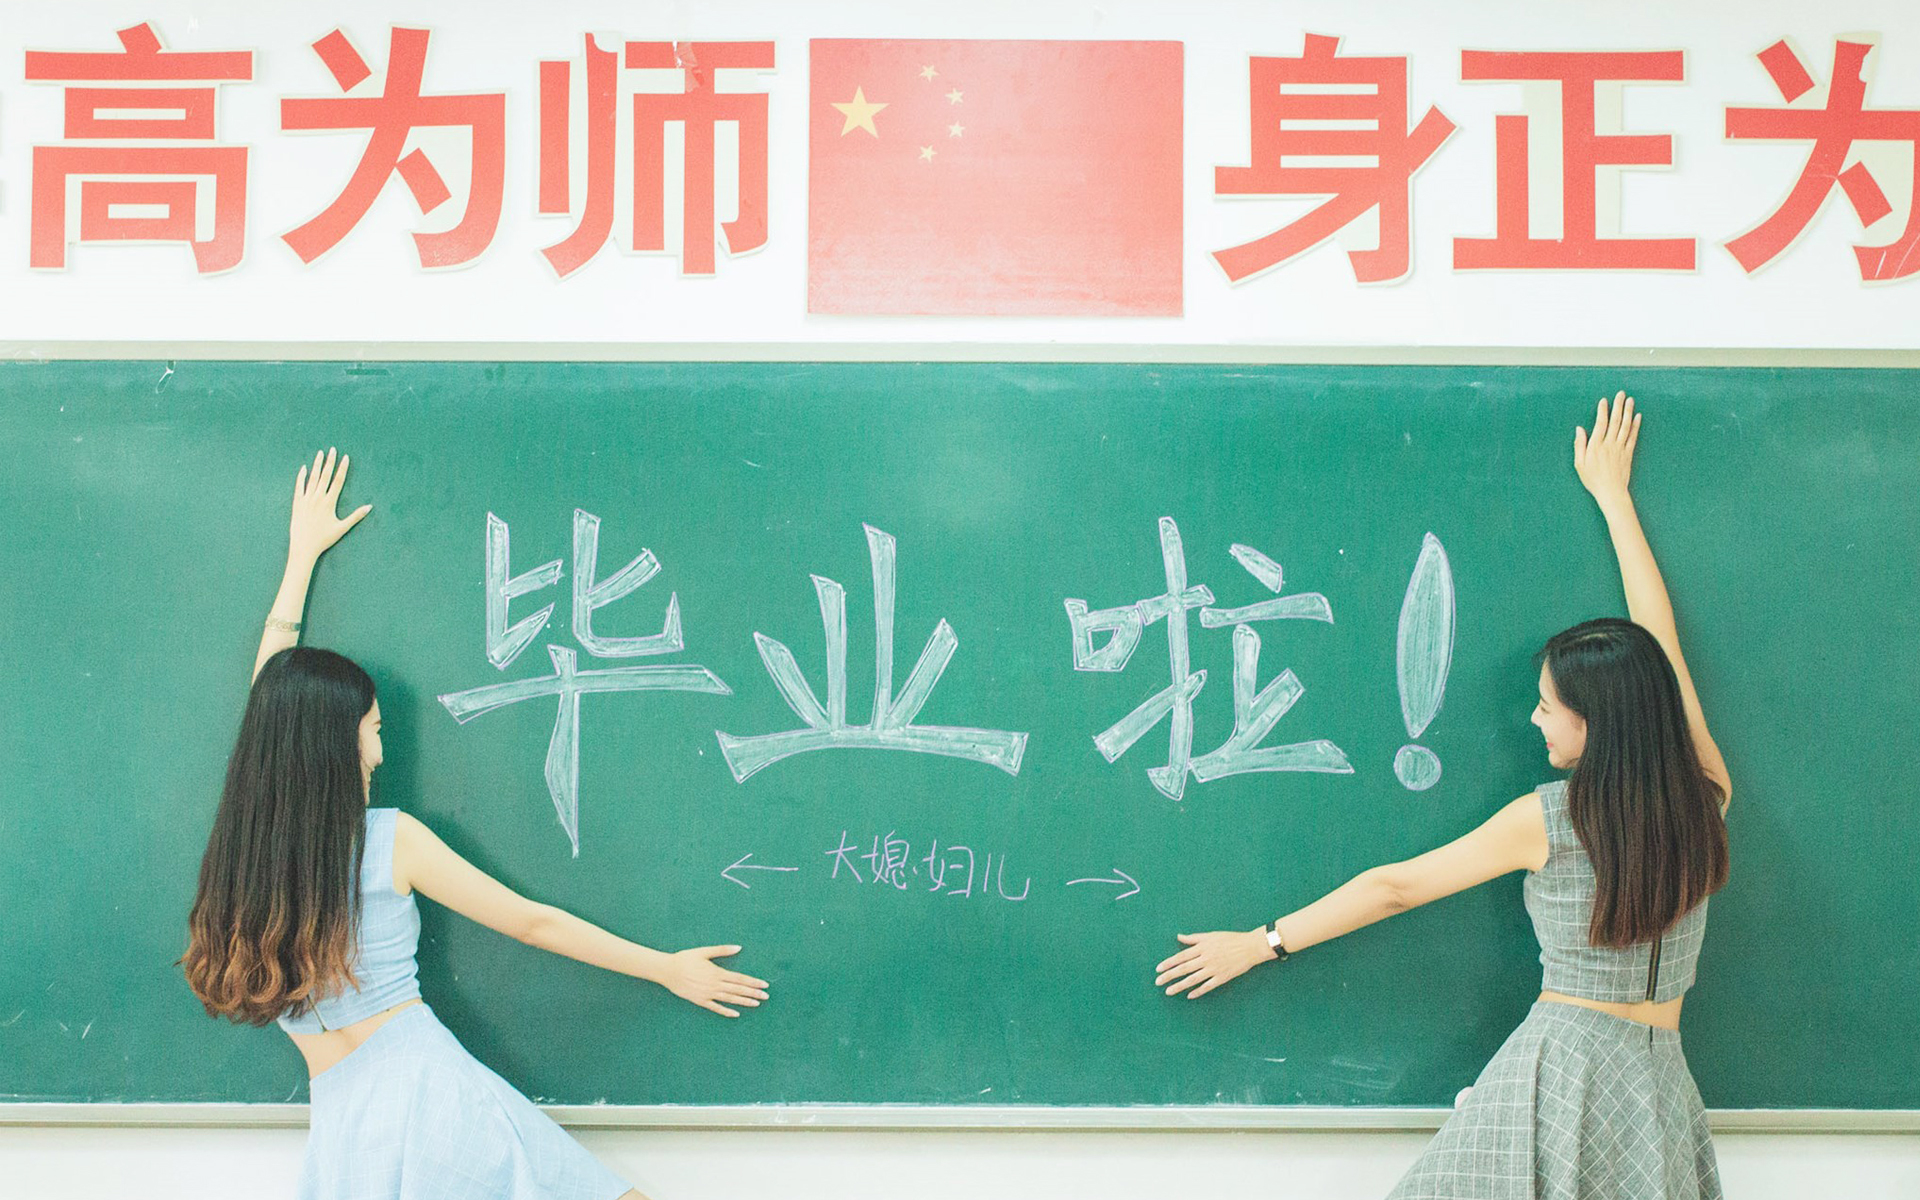 高为师 身正为
毕业啦!
← 大媳妇儿 →